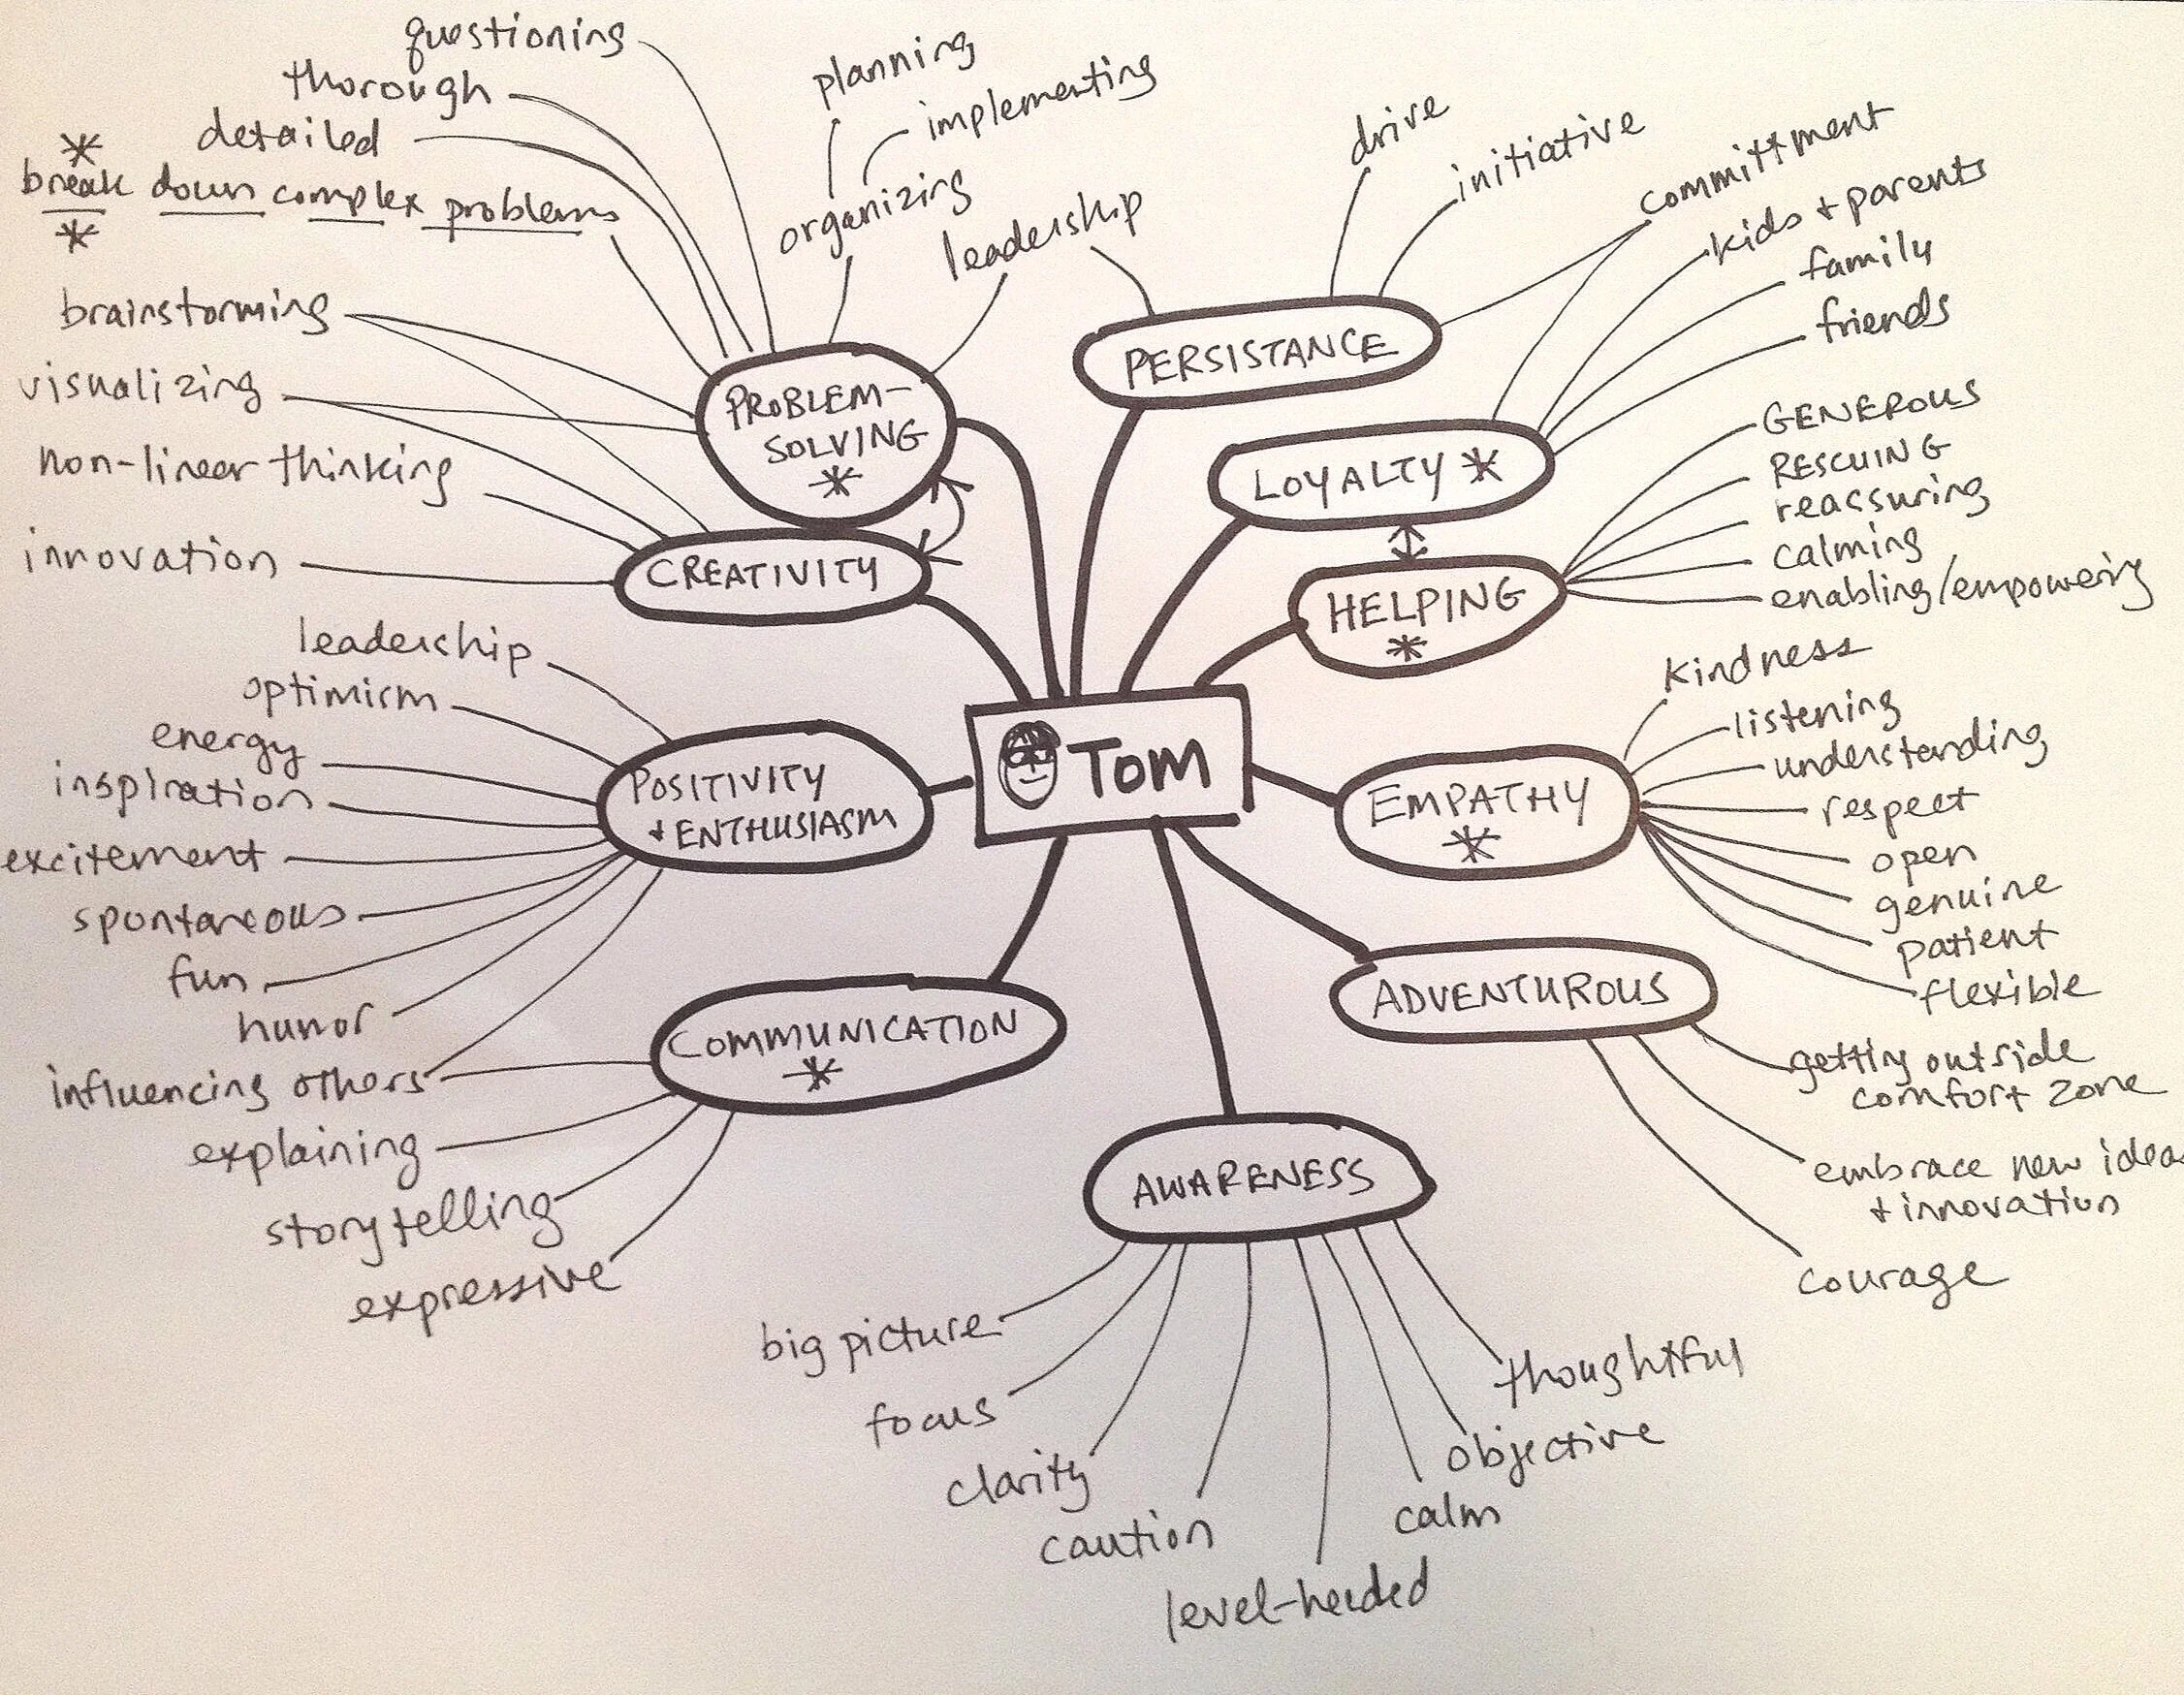 questioning
thorough
detailed
* break down complex problems *
planning
implementing
organizing
leadership
brainstorming
visualizing
non-linear thinking
innovation
PROBLEM-
SOLVING
*
CREATIVITY
drive
initiative
committment
PERSISTANCE
kids + parents
family
friends
LOYALTY *
GENEROUS
RESCUING
reassuring
calming
enabling/empowering
HELPING
*
Tom
leadership
optimism
energy
inspiration
excitement
spontaneous
fun
humor
influencing others
POSITIVITY
+ ENTHUSIASM
explaining
storytelling
expressive
COMMUNICATION
*
kindness
listening
understanding
respect
open
genuine
patient
flexible
EMPATHY
*
ADVENTUROUS
getting outside
comfort zone
embrace new ideas
+ innovation
courage
AWARENESS
big picture
focus
clarity
caution
level-headed
calm
objective
thoughtful